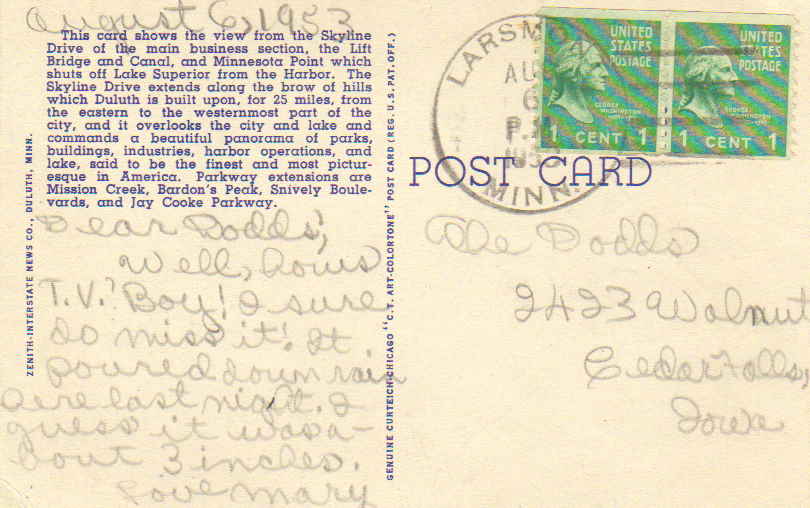 August 6, 1953
This card shows the view from the Skyline
Drive of the main business section, the Lift
Bridge and Canal, and Minnesota Point which
shuts off Lake Superior from the Harbor. The
Skyline Drive extends along the brow of hills
which Duluth is built upon, for 25 miles, from
the eastern to the westernmost part of the
city, and it overlooks the city and lake and
commands a beautiful panorama of parks,
buildings, industries, harbor operations, and
lake, said to be the finest and most pictur-
esque in America. Parkway extensions are
Mission Creek, Bardon's Peak, Snively Boule-
vards, and Jay Cooke Parkway.
Dear Dodds',
Well, hows
T.V.? Boy! I sure
do miss it! It
poured down rain
here last night. I
guess it was a-
bout 3 inches.
Love Mary
ZENITH-INTERSTATE NEWS CO., DULUTH, MINN.
GENUINE CURTEICH-CHICAGO "C.T. ART-COLORTONE" POST CARD (REG. U.S. PAT. OFF.)
POST CARD
LARSMO
AUG
6
P.M
1953
MINN.
UNITED
STATES
POSTAGE
GEORGE
WASHINGTON
1 CENT 1
UNITED
STATES
POSTAGE
GEORGE
WASHINGTON
1 CENT 1
The Dodds
2423 Walnut
Cedar Falls,
Iowa